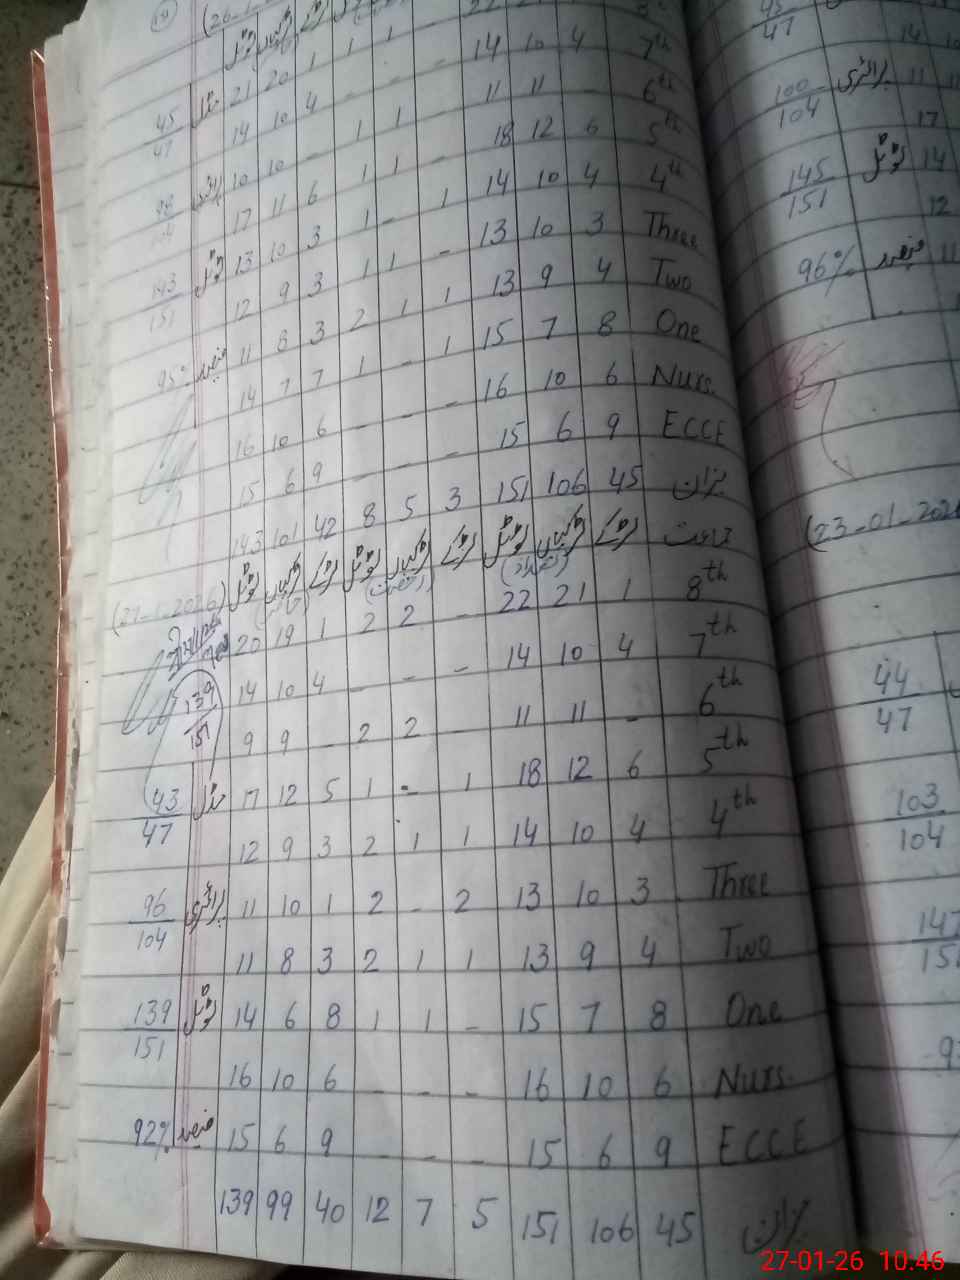 (26-1-
ٹوٹل لڑکیاں لڑکے
22 21
21 20 1 1 1 - 14 10 4 7th
45/47 مڈل 14 10 4 - - - 11 11 - 6th
10 10 - 1 1 - 18 12 6 5th
98/104 پرائمری 17 11 6 1 - 1 14 10 4 4th
143/151 ٹوٹل 13 10 3 1 1 - 13 10 3 Three
12 9 3 13 9 4 Two
95% فیصد 11 8 3 2 1 1 15 7 8 One
14 7 7 1 - 1 16 10 6 Nurs.
16 10 6 - - - 15 6 9 ECCE
15 6 9 - - -
143 101 42 8 5 3 151 106 45 میزان
(27-1-2026) ٹوٹل لڑکیاں لڑکے ٹوٹل لڑکیاں لڑکے ٹوٹل لڑکیاں لڑکے جماعت
20 19 1 2 2 - 22 21 1 8th
139/151 14 10 4 - - - 14 10 4 7th
9 9 - 2 2 - 11 11 - 6th
43/47 مڈل 17 12 5 1 - 1 18 12 6 5th
12 9 3 2 1 1 14 10 4 4th
96/104 پرائمری 11 10 1 2 - 2 13 10 3 Three
11 8 3 2 1 1 13 9 4 Two
139/151 ٹوٹل 14 6 8 1 1 - 15 7 8 One
16 10 6 - - - 16 10 6 Nurs.
92% فیصد 15 6 9 - - - 15 6 9 ECCE
139 99 40 12 7 5 151 106 45 میزان
45/47 14 10
100/104 پرائمری 11
17
145/151 ٹوٹل 14
12
96% فیصد 11
(23-01-2026
44/47
103/104
147/151
27-01-26 10:46